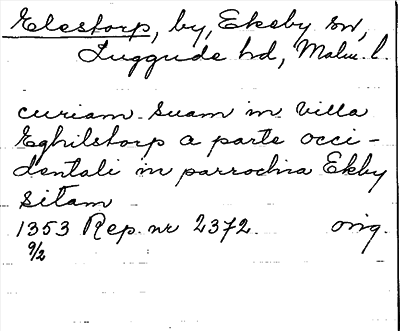 Elestorp, by, Ekeby sn,
Luggude hd, Malm. l.
curiam suam in villa
Eghilstorp a parte occi-
dentali in parrochia Ekby
sitam
1353 Rep. nr 2372. orig.
9/2